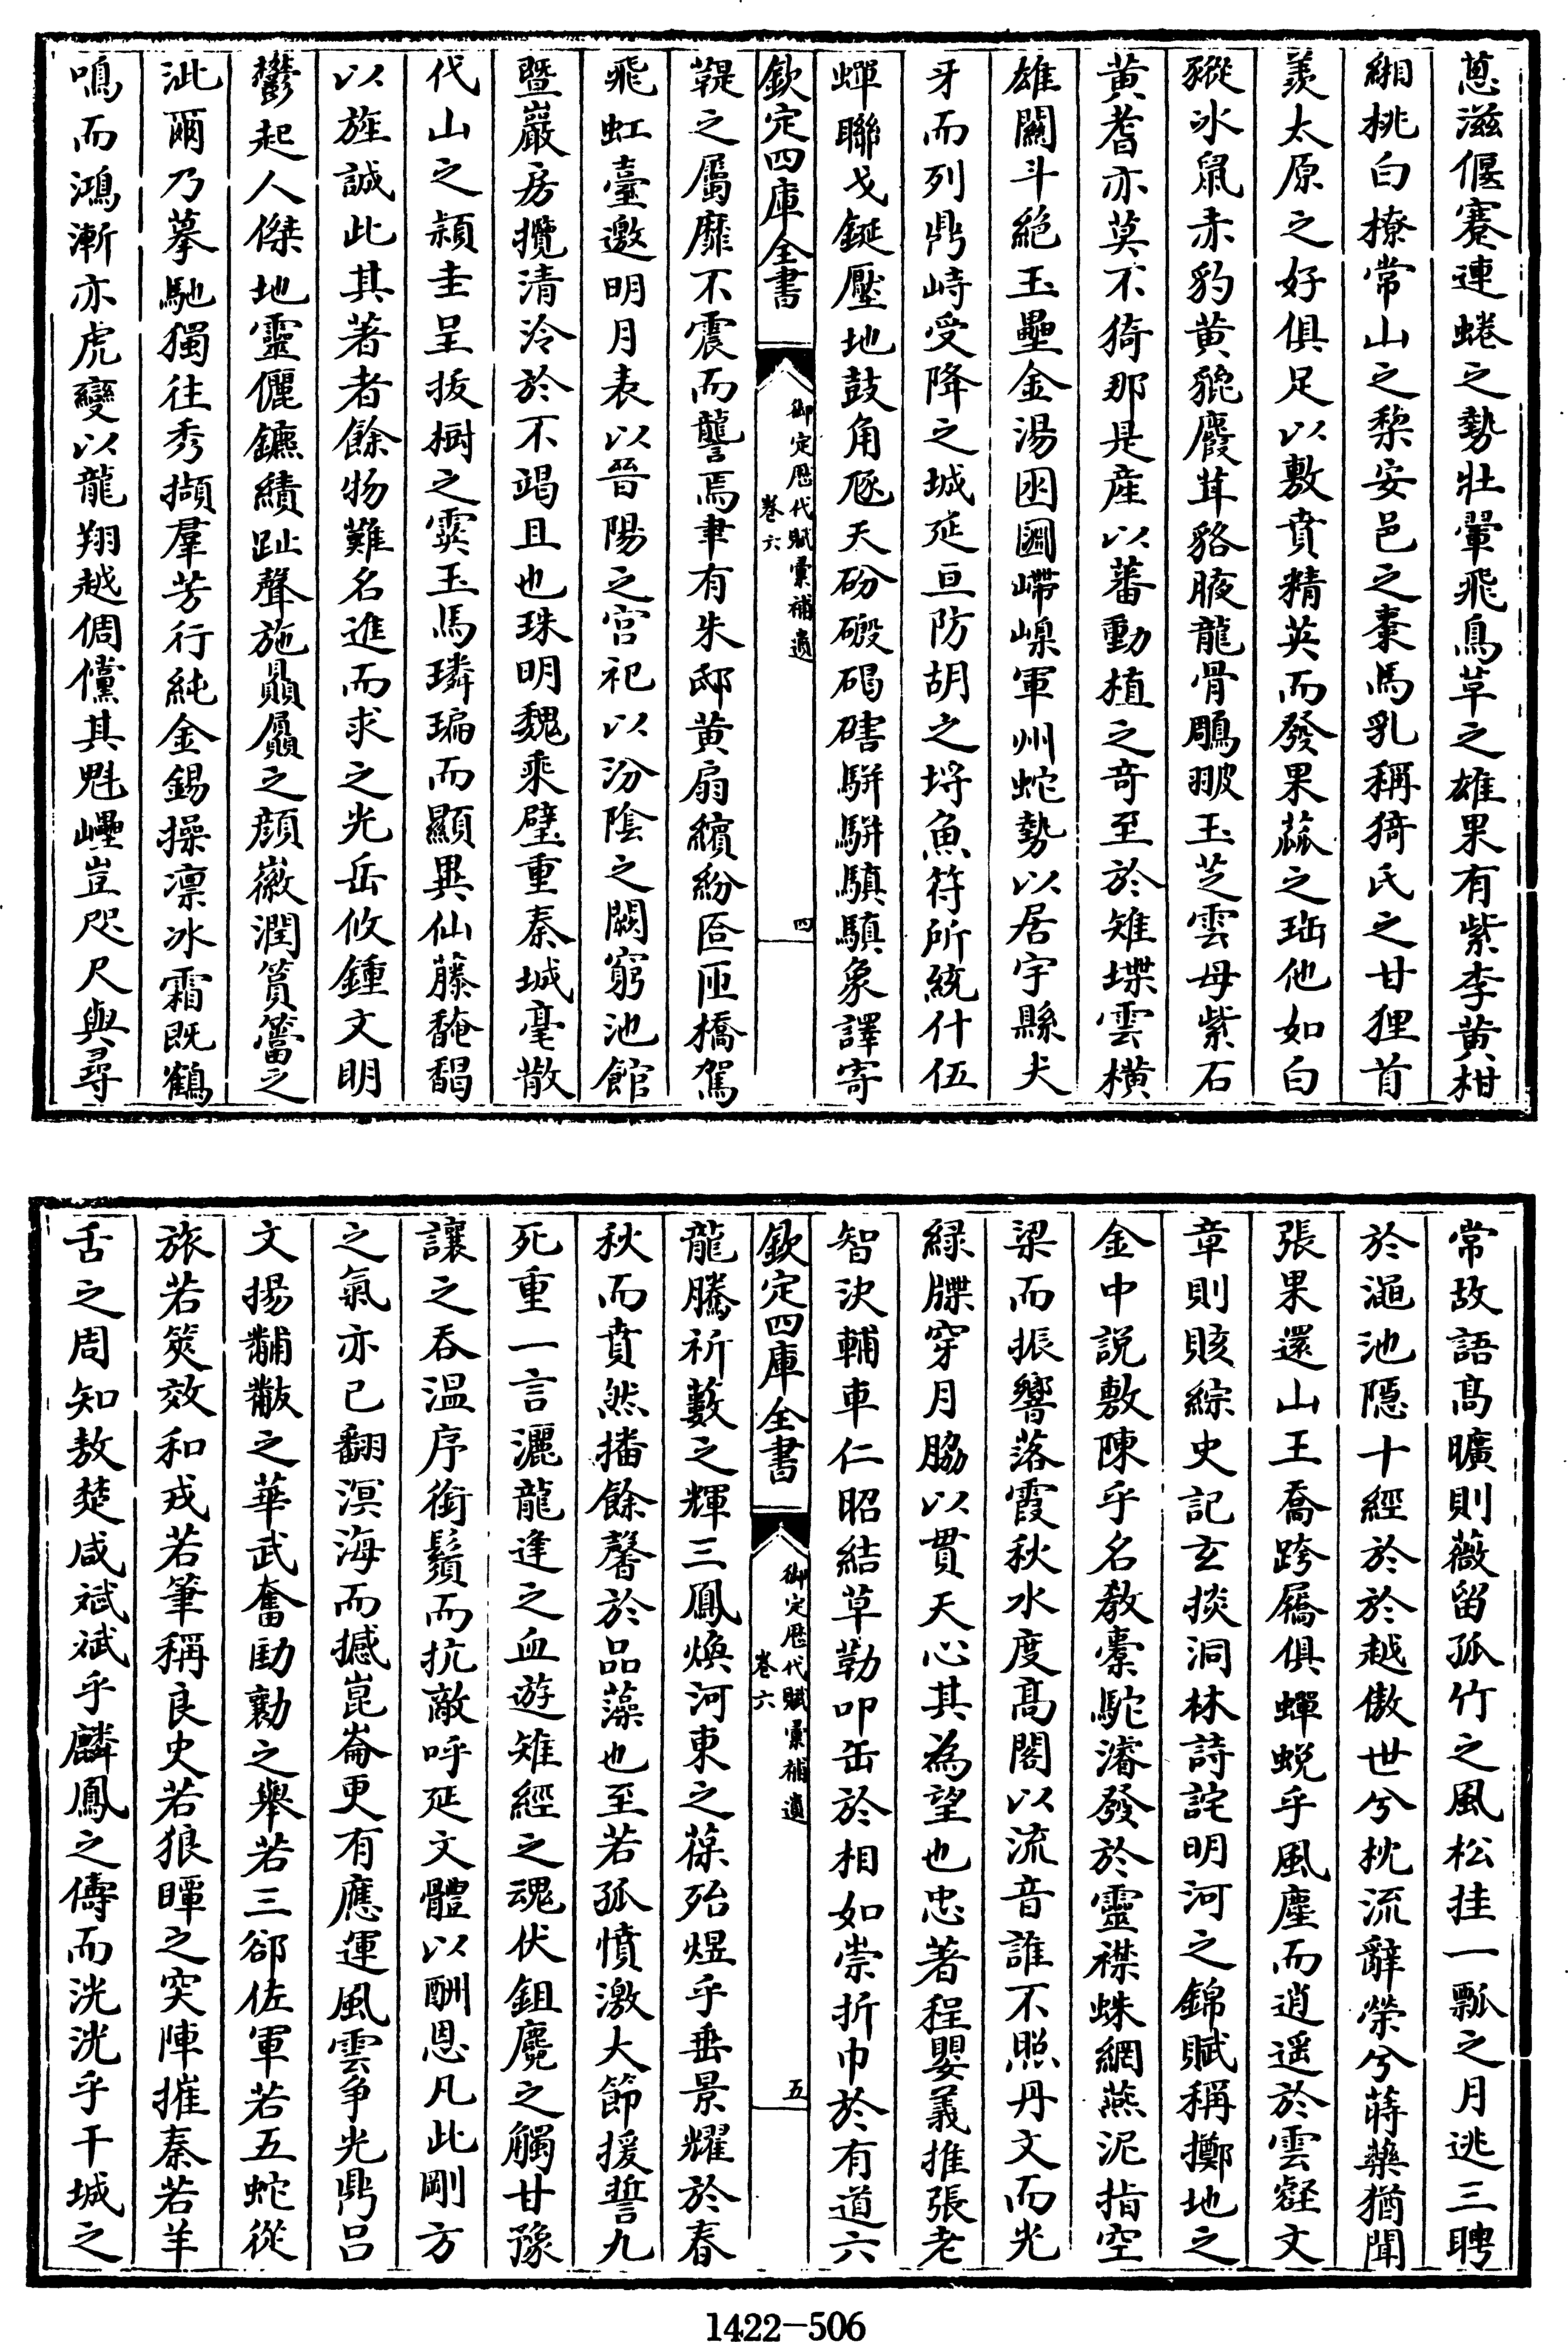 蔥滋偃蹇連蜷之勢壯翬飛鳥草之雄果有紫李黃柑
緗桃白橑常山之梨安邑之棗馬乳稱猗氏之甘狸首
羨太原之好俱足以敷賁精英而發果蓏之珤他如白
豵氷鼠赤豹黃貔麛茸貉腋龍骨鵰翍玉芝雲母紫石
黃耆亦莫不猗那是産以蕃動植之竒至於雉堞雲橫
雄關斗絕玉壘金湯囦圌嵽嵲軍州蛇勢以居宇縣犬
牙而列鼎峙受降之城延亘防胡之埒魚符所統什伍
蟬聯戈鋋壓地鼓角豗天砏磤碣磍駢駢驞驞象譯寄
欽定四庫全書
御定歷代賦彙補遺
卷六
四
鞮之屬靡不震而讋焉聿有朱邸黃扇繽紛匼匝橋駕
飛虹臺邀明月表以晉陽之宮祀以汾陰之闕窮池館
暨巖房攬清泠於不竭且也珠明魏乘璧重秦城毫散
代山之潁圭呈拔樹之霙玉馬璘㻞而顯異仙藤馣馤
以旌誠此其著者餘物難名進而求之光岳攸鍾文明
鬱起人傑地靈儷鑣績趾聲施贔屭之顏徽潤篔簹之
泚爾乃摹馳獨往秀擷羣芳行純金錫操凛冰霜旣鶴
鳴而鴻漸亦虎變以龍翔越倜儻其魁壘豈咫尺與尋
常故語髙曠則薇留孤竹之風松挂一瓢之月逃三聘
於澠池隱十經於於越傲世兮枕流辭榮兮蒔藥猶聞
張果還山王喬跨屩俱蟬蛻乎風塵而逍遥於雲壑文
章則賅綜史記玄掞洞林詩詫明河之錦賦稱擲地之
金中說敷陳乎名敎橐駝濬發於靈襟蛛網燕泥指空
梁而振響落霞秋水度髙閣以流音誰不照丹文而光
緑牒穿月脇以貫天心其為望也忠著程嬰義推張老
智決輔車仁昭結草勒叩缶於相如崇折巾於有道六
欽定四庫全書
御定歷代賦彙補遺
卷六
五
龍騰祈藪之輝三鳳煥河東之葆殆煜乎垂景耀於春
秋而賁然播餘馨於品藻也至若孤憤激大節援誓九
死重一言灑龍逢之血遊雉經之魂伏鉏麑之觸甘豫
讓之吞温序銜鬚而抗敵呼延文體以酬恩凡此剛方
之氣亦已翻溟海而撼崑崙更有應運風雲爭光鼎呂
文揚黼黻之華武奮劻勷之舉若三郤佐軍若五蛇從
旅若筴效和戎若筆稱良史若狼瞫之突陣摧秦若羊
舌之周知敖楚咸斌斌乎麟鳳之儔而洸洸乎干城之
1422-506